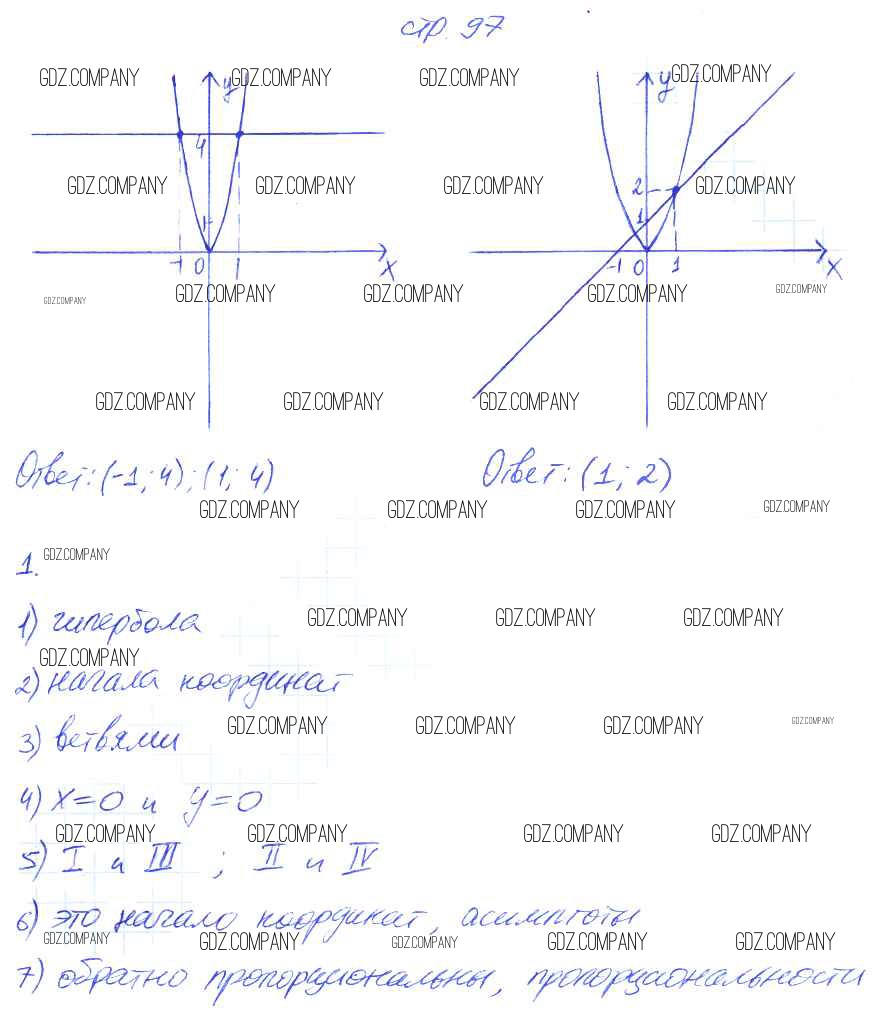 стр. 97
GDZ.COMPANY GDZ.COMPANY GDZ.COMPANY GDZ.COMPANY
y y
4
GDZ.COMPANY GDZ.COMPANY GDZ.COMPANY 2 GDZ.COMPANY
1 1
-1 0 1 x -1 0 1 x
GDZ.COMPANY GDZ.COMPANY GDZ.COMPANY GDZ.COMPANY GDZ.COMPANY
GDZ.COMPANY GDZ.COMPANY GDZ.COMPANY GDZ.COMPANY
Ответ: (-1; 4); (1; 4) Ответ: (1; 2)
GDZ.COMPANY GDZ.COMPANY GDZ.COMPANY GDZ.COMPANY
1. GDZ.COMPANY
1) гипербола GDZ.COMPANY GDZ.COMPANY GDZ.COMPANY
GDZ.COMPANY
2) начала координат
GDZ.COMPANY GDZ.COMPANY GDZ.COMPANY GDZ.COMPANY
3) ветвями
4) x=0 и y=0
GDZ.COMPANY GDZ.COMPANY GDZ.COMPANY GDZ.COMPANY
5) I и III ; II и IV
6) это начало координат, асимптоты
GDZ.COMPANY GDZ.COMPANY GDZ.COMPANY GDZ.COMPANY GDZ.COMPANY
7) обратно пропорциональны, пропорциональности